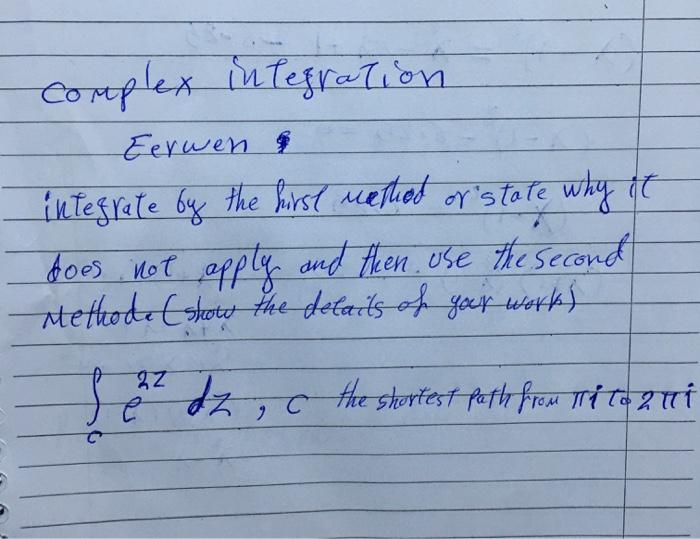 Complex integration
Eerwen
integrate by the first method or state why it
does not apply and then use the second
Methode (show the details of your work)
∫_C e^{2z} dz, C the shortest path from πi to 2πi